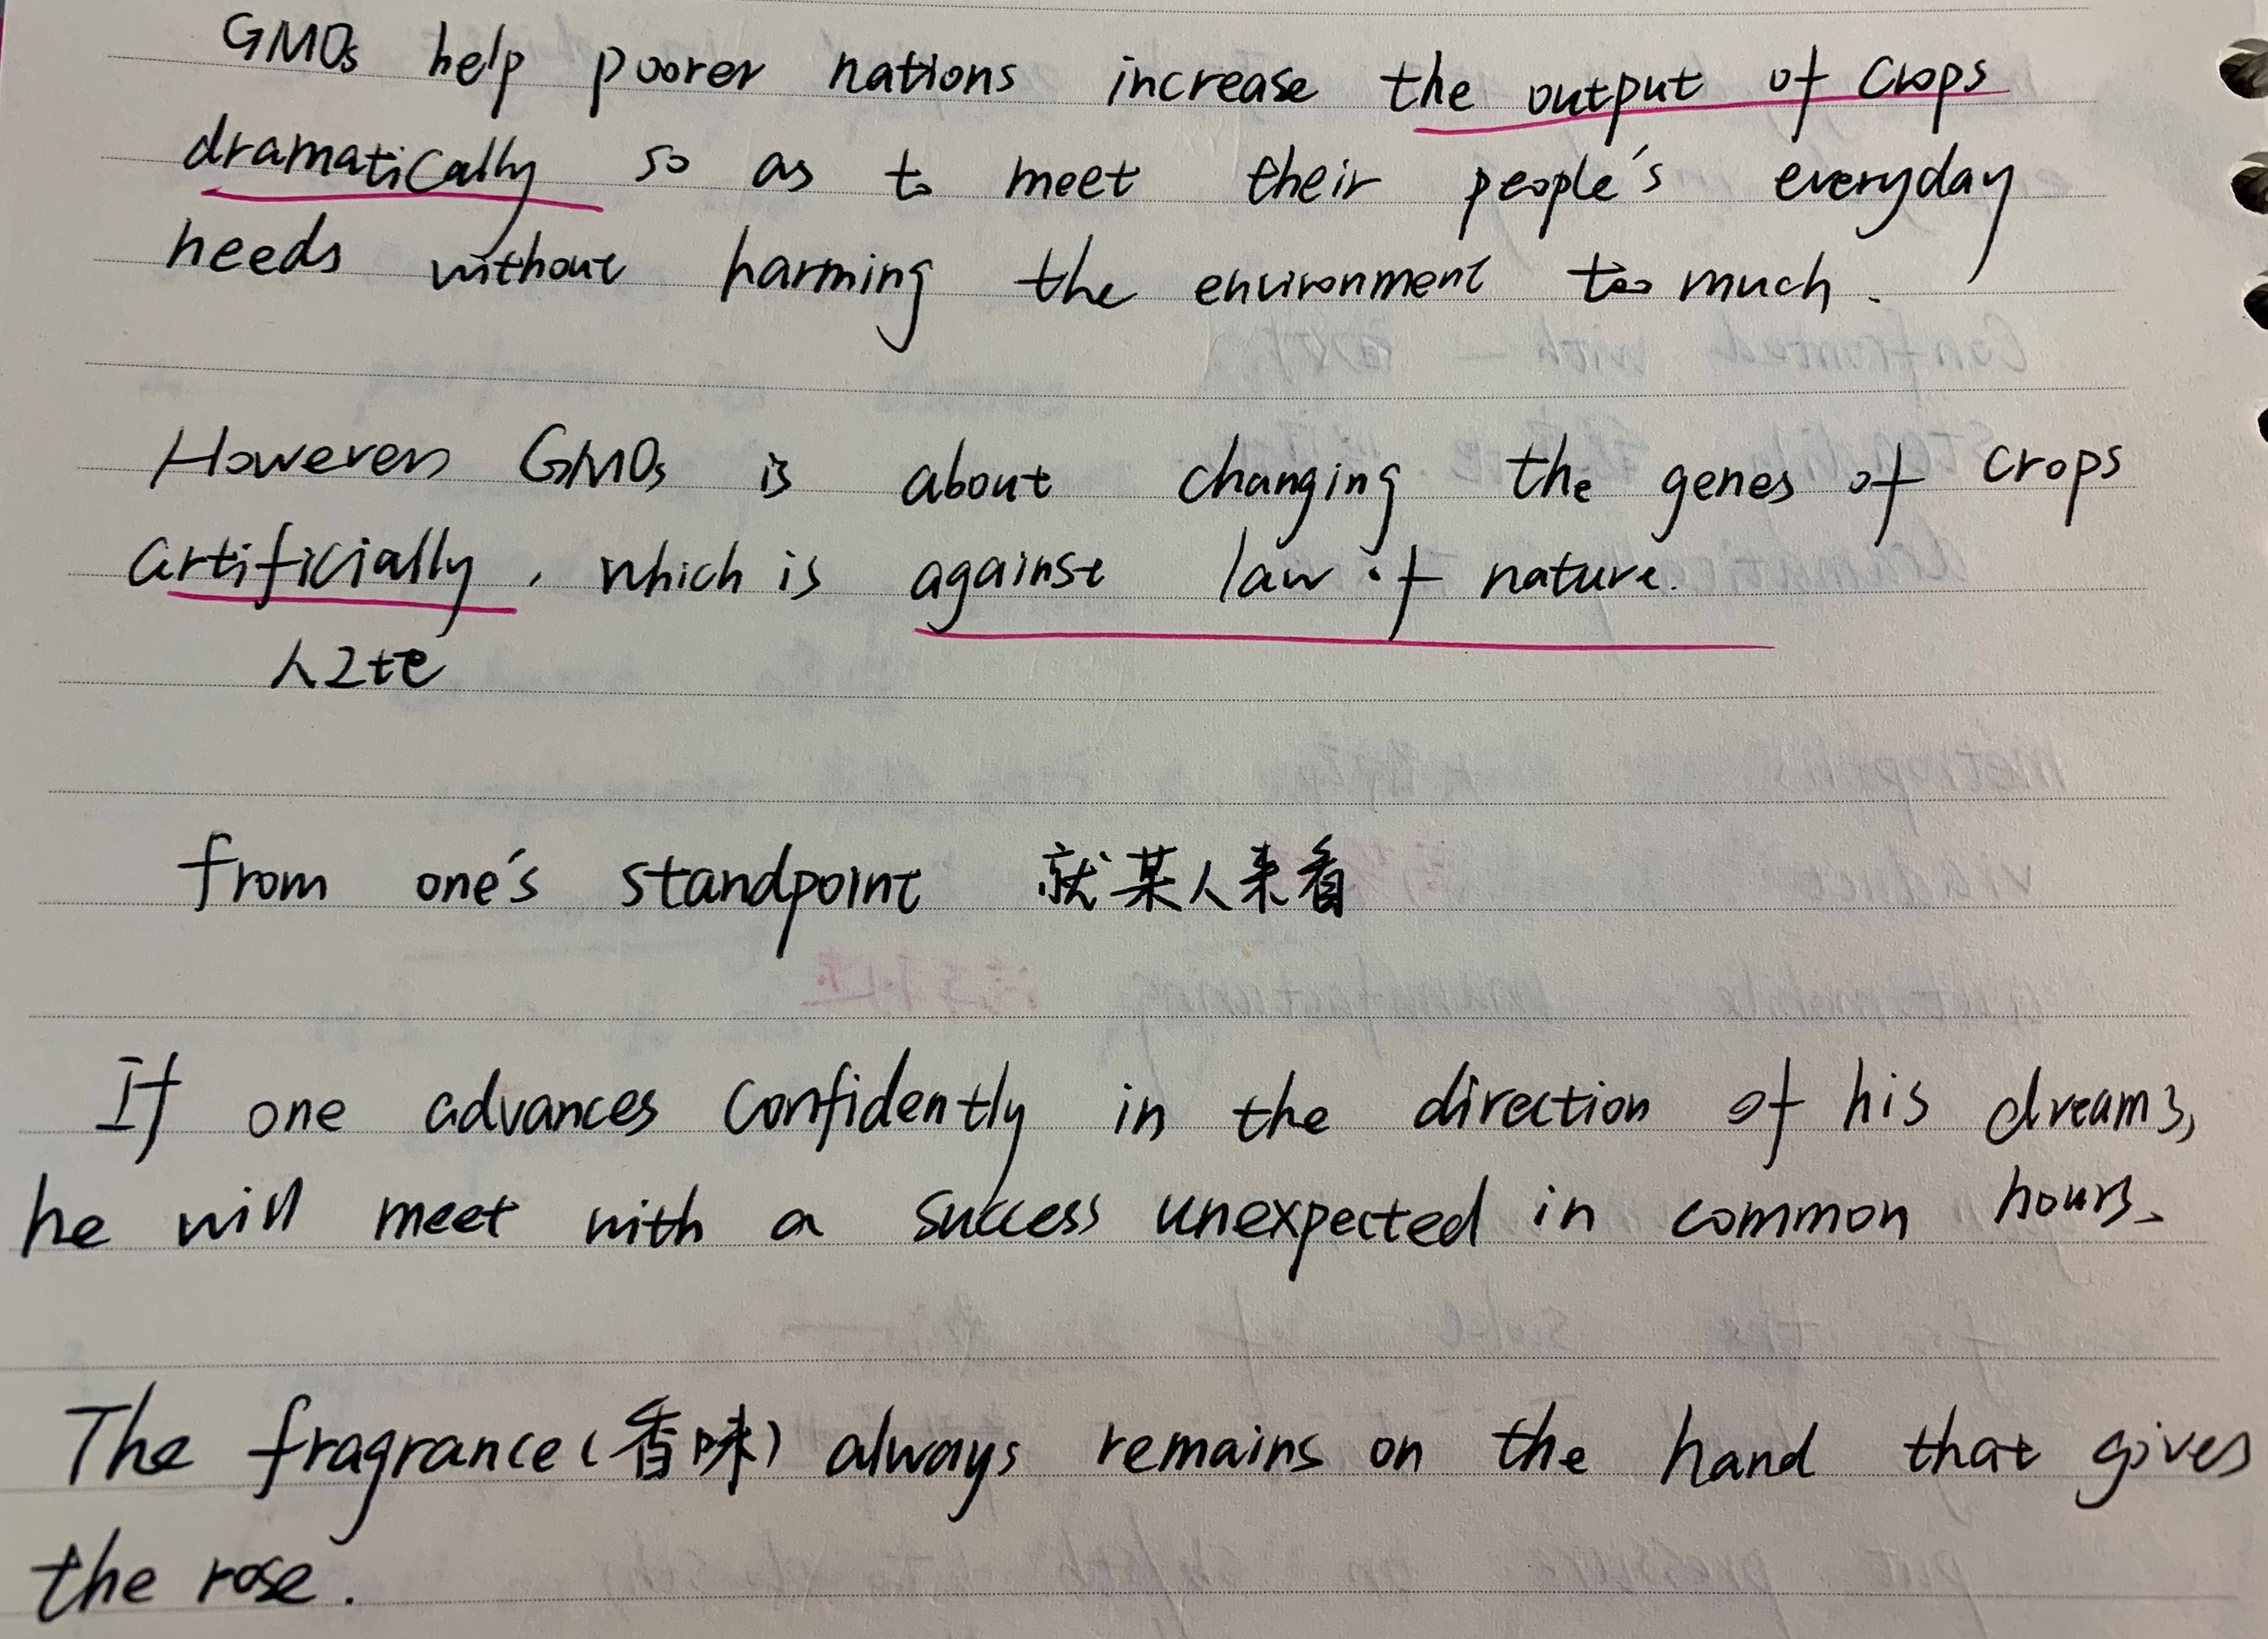 GMOs help poorer nations increase the output of crops
dramatically so as to meet their people's everyday
needs without harming the environment too much.
However, GMOs is about changing the genes of crops
artificially, which is against law of nature.
人工地
from one's standpoint 就某人来看
If one advances confidently in the direction of his dreams,
he will meet with a success unexpected in common hours.
The fragrance (香味) always remains on the hand that gives
the rose.